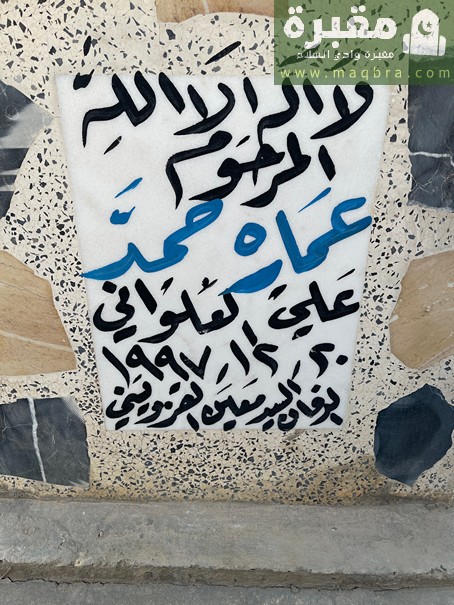 مقبرة
مقبرة وادي السلام
www.maqbra.com
لا اله الا الله
المرحوم
عماد حمد
علي لعلواني
٢٠ ١٢ ١٩٩٧
السيد معين القزويني